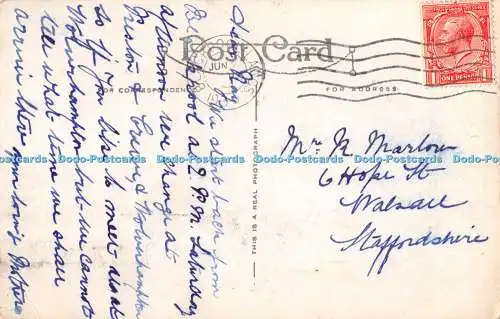 Post Card
FOR CORRESPONDENCE
FOR ADDRESS
JUN
ONE PENNY
THIS IS A REAL PHOTOGRAPH
Dear Ray, We start back from
B'pool at 2 P.M. Saturday
afternoon we change at
Preston & Crewe & Wolverhampton
so if you like to meet us at
Wolverhampton but we cannot
tell what time we shall
arrive there
Mr. N. Marlow
6 Hope St
Walsall
Staffordshire
Dodo-Postcards Dodo-Postcards Dodo-Postcards Dodo-Postcards